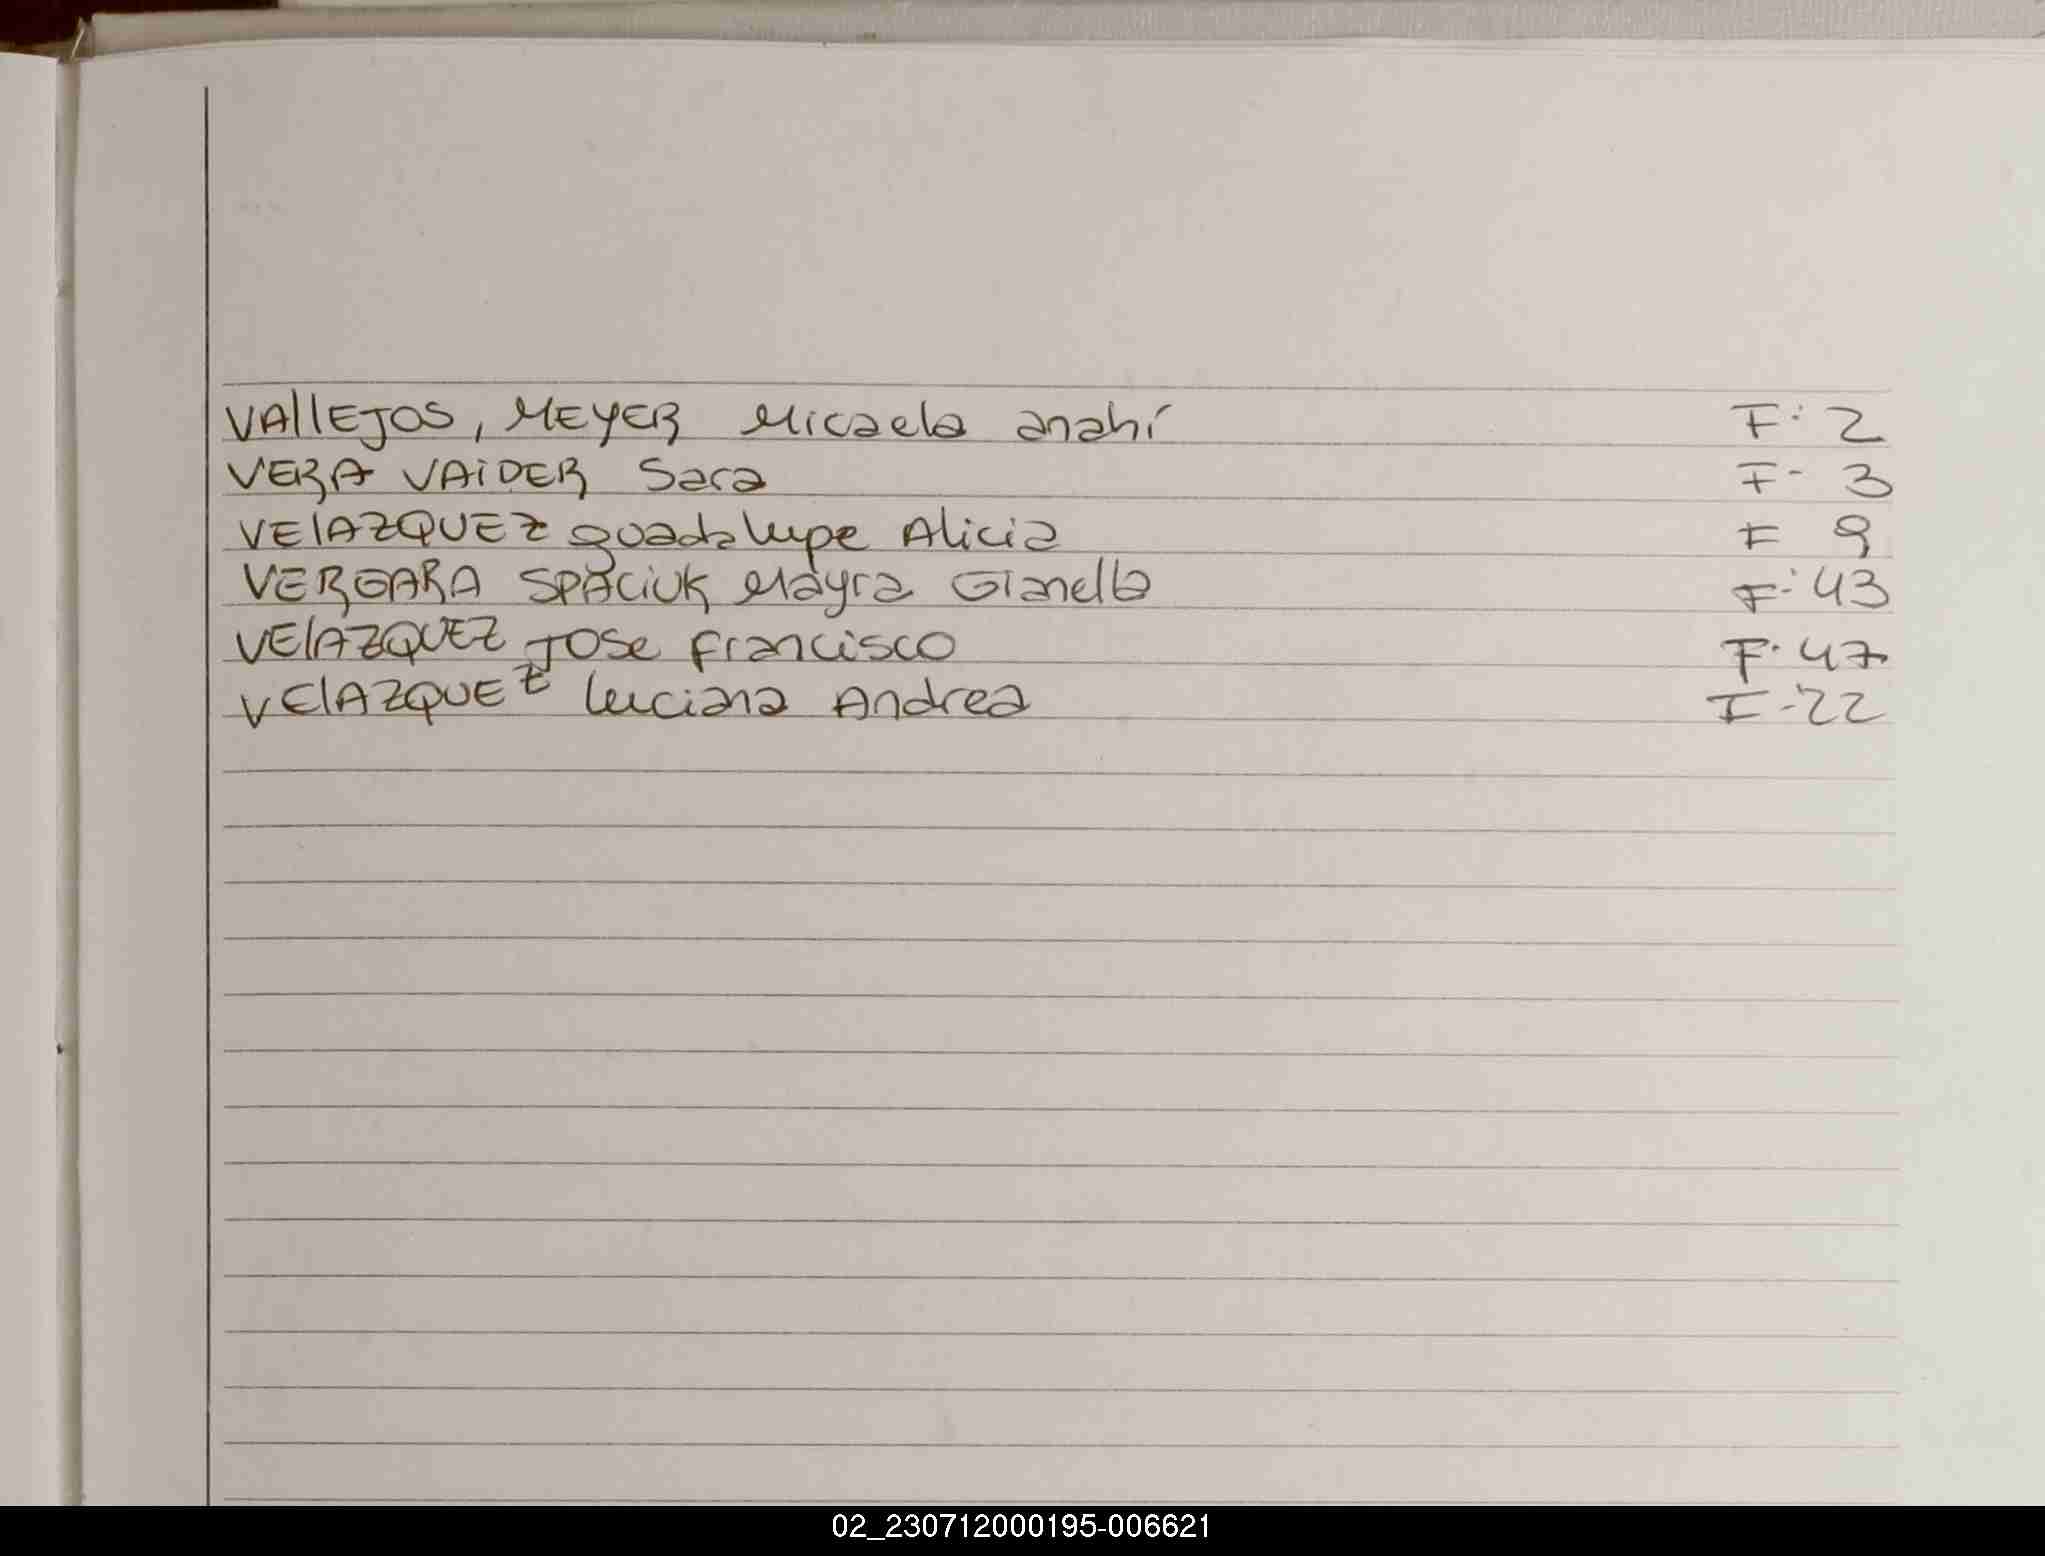 VAllEJOS, MEYER Micaela anahí F: 2
VERA VAiDER Sara F- 3
VElAZQUEZ guadalupe Alicia F 9
VERGARA SPACiUK Mayra Gianella F: 43
VElAZQUEZ JOSe francisco F. 47
VElAZQUEZ luciana Andrea F-22
02_230712000195-006621